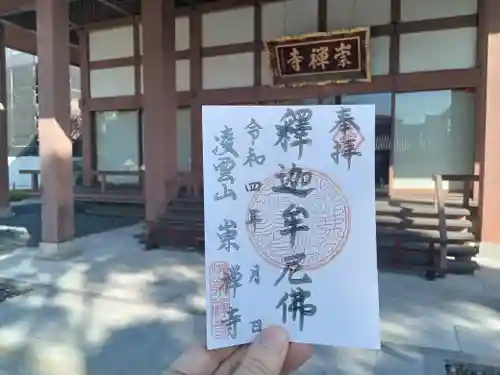 崇禅寺
奉拝
釋迦牟尼佛
令和四年 月 日
凌雲山 崇禅寺